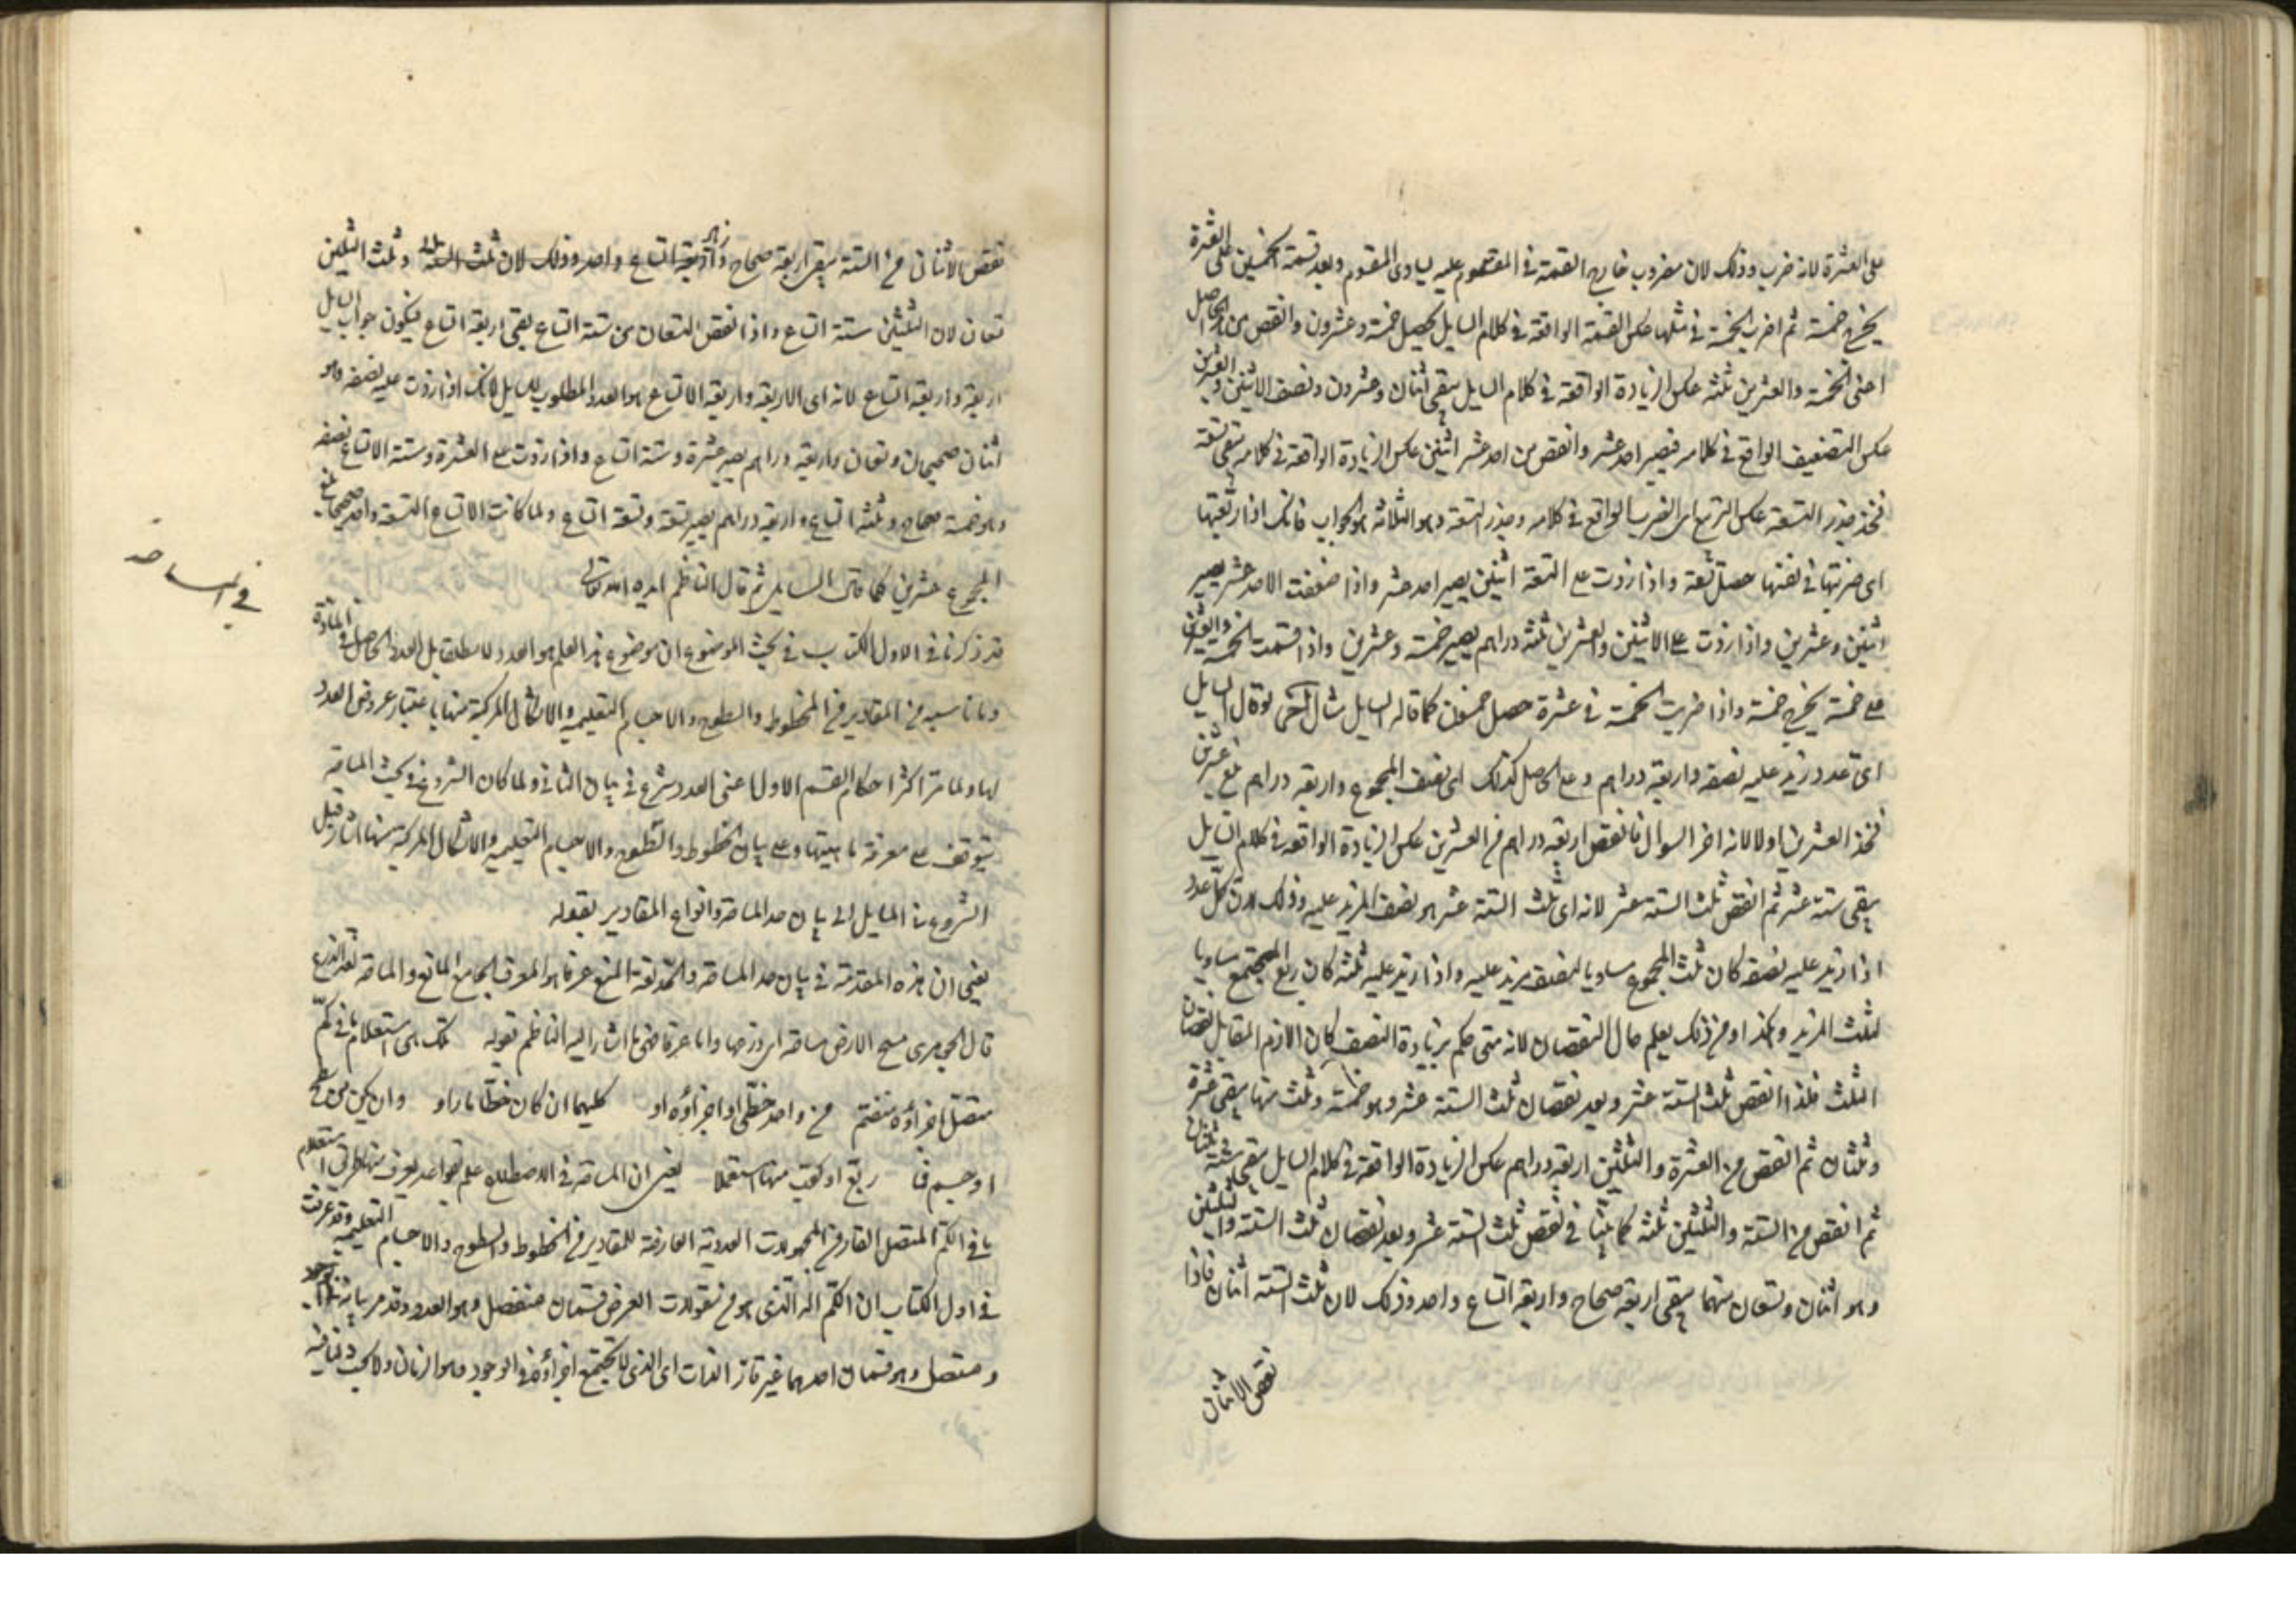 على العشرة لانه ضرب وذلك لان مضروب خارج القسمة فى المقسوم عليه يساوى المقسوم وبعد قسمة الخمسين على العشرة
يخرج خمسة ثم اضرب الخمسة فى مثلها عكس القسمة الواقعة فى كلام السايل يحصل خمسة وعشرون وانقص من الحاصل
اعنى الخمسة والعشرين ثلثة عكس الزيادة الواقعة فى كلام السايل يبقى اثنان وعشرون ونصف الاثنين والعشرين
عكس التضعيف الواقع فى كلامه فيصير احد عشر وانقص من احد عشر اثنين عكس الزيادة الواقعة فى كلامه يبقى تسعة
فخذ جذر التسعة عكس التربيع اى الضرب الواقع فى كلامه وجذر التسعة وهو الثلاثة هو الجواب فانك اذا ربعتها
اى ضربتها فى نفسها حصل تسعة واذا زدت على التسعة اثنين يصير احد عشر واذا ضعفت الاحد عشر يصير
اثنين وعشرين واذا زدت على الاثنين والعشرين ثلثة دراهم يصير خمسة وعشرين واذا قسمت الخمسة والعشرين
على خمسة يخرج خمسة واذا ضربت الخمسة فى عشرة حصل خمسون كما قاله السايل مثال آخر لو قال السايل
اى عدد زيد عليه نصفه واربعة دراهم وعلى الحاصل كذلك اى نصف المجموع واربعة دراهم بلغ عشرين
فخذ العشرين اولا لانه اخر السوال فانقص اربعة دراهم من العشرين عكس الزيادة الواقعة فى كلام السايل
يبقى ستة عشر ثم انقص ثلث الستة عشر لانه اى ثلث الستة عشر هو نصف المزيد عليه وذلك لان كل عدد
اذا زيد عليه نصفه كان ثلث المجموع مساويا لنصف مزيد عليه واذا زيد عليه ثلثه كان ربع المجتمع مساويا
لثلث المزيد وهكذا ومن ذلك يعلم حال النقصان لانه متى حكم بزيادة النصف كان اللازم المقابل نقصان
الثلث فلذا انقص ثلث الستة عشر وبعد نقصان ثلث الستة عشر وهو خمسة وثلث منها يبقى عشرة
وثلثان ثم انقص من العشرة والثلثين اربعة دراهم عكس الزيادة الواقعة فى كلام السايل يبقى ستة وثلثان
ثم انقص من الستة والثلثين ثلثه كما بينا فى نقص ثلث الستة عشر وبعد نقصان ثلث الستة والثلثين
وهو اثنان وتسعان منهما يبقى اربعة صحاح واربعة اتساع واحد وذلك لان ثلث الستة اثنان فاذا
نقص الاثنان
نقص الاثنان من الستة يبقى اربعة صحاح واربعة اتساع واحد وذلك لان ثلث الستة وثلث الثلثين
تسعان لان الثلثين ستة اتساع واذا نقص التسعان من ستة اتساع يبقى اربعة اتساع فيكون جواب السايل
اربعة واربعة اتساع لانه اى الاربعة واربعة الاتساع هو العدد المطلوب للسايل لانك اذا زدت عليه نصفه وهو
اثنان صحيحان وتسعان واربعة دراهم يصير عشرة وستة اتساع واذا زدت على العشرة وستة الاتساع نصفه
وهو خمسة صحاح وثلثة اتساع واربعة دراهم يصير تسعة وتسعة اتساع ولما كانت الاتساع التسعة واحد صحيحا بلغ
المجموع عشرين كما قال السايل ثم قال الناظم ايده الله تعالى
فى المساحة
قد ذكرنا فى الاول الكتاب فى بحث الموضوع ان موضوع هذا العلم هو العدد لا مطلقا بل العدد الحاصل فى المادة
وما تناسبه من المقادير من الخطوط والسطوح والاجسام التعليمية والاشكال المركبة منها باعتبار عروض العدد
لها ولما مر اكثر احكام القسم الاول اعنى العدد شرع فى بيان الثانى ولما كان الشروع فى بحث المساحة
يتوقف على معرفة ماهيتها وعلى بيان الخطوط والسطوح والاجسام التعليمية والاشكال المركبة منها اشار قبل
الشروع فى المسايل الى بيان حد المساحة وانواع المقادير بقوله
يعنى ان هذه المقدمة فى بيان حد المساحة والحد لغة المنع عرفا هو المعرف الجامع المانع والمساحة لغة الذرع
قال الجوهرى مسح الارض مساحة اى ذرعها واما عرفا فهى ما اشار اليه الناظم بقوله تلك هى استعلام ما فى كم
متصل اجزاؤه منقسم من واحد خطى او اجزاؤه او كليهما ان كان خطا ما راو وان يكن من سطح
او جسم فا ربع او كعب منها استعملا يعنى ان المساحة فى الاصطلاح علم بقواعد يعرف منها طرق استعلام
ما فى الكم المتصل القار من المجهولات العددية العارضة للمقادير من الخطوط والسطوح والاجسام التعليمية وقد عرفت
فى اول الكتاب ان الكم الذى هو من مقولات العرض قسمان منفصل وهو العدد وقد مر بيانه
ومتصل وهو قسمان احدهما غير قار الذات اى الذى لا يجتمع اجزاؤه فى الوجود وهو الزمان ولا بحث لنا فيه